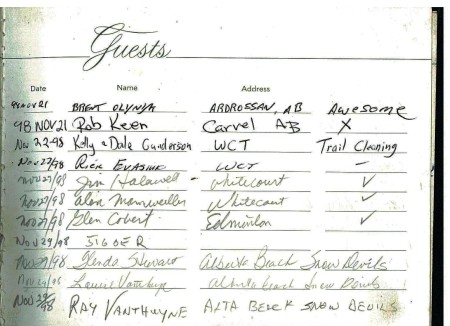 Guests
Date Name Address
98 NOV 21 BRENT OLYNYK ARDROSSAN, AB Awesome
98 NOV 21 Rob Keen Carvel AB X
Nov 22-98 Kelly & Dale Gunderson WCT Trail Cleaning
Nov 27/98 RICK EVASIUK WCT -
Nov 27/98 Jim Whitecourt ✓
Nov 27/98 Whitecourt ✓
Nov 27/98 Glen Edmonton ✓
Nov 29/98
Nov 29/98 Glenda Stewart Alberta Beach Snow Devils
Nov 29/98 Alberta Beach Snow Devils
Nov 98 RAY VANTHUYNE ALTA BEACH SNOW DEVILS